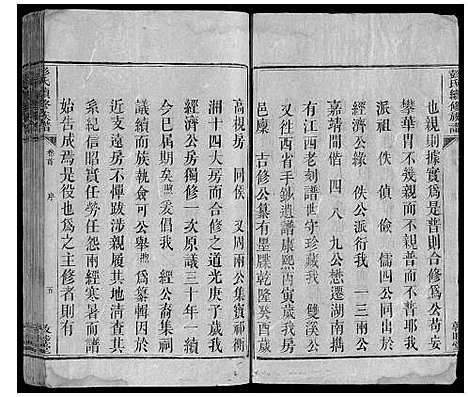 彭氏續修族譜
也親則據實爲是普則合修爲公苟妄
攀華胄不幾親而不親實而不實耶我
派祖 佚 偵 儉 儒四公同派
經濟公緣 佚公派衍我 一三兩公
嘉靖間偕 四 八 九公懋遷湖南攜
有江西老刻譜世守珍藏我 雙溪公
又往西省手鈔遺譜康熙丙寅歲我房
邑廩 古修公纂有墨牒乾隆癸酉歲
高梘房 同侯 又周兩公集賓祠衡
湘十四大房而合修之道光庚子歲我
經濟公房獨修一次原議三十年一續
今已屆期矣 爰倡我 經公裔集祠
議續而族執僉可公舉 爲纂輯因於
近支遠房不憚跋涉親履其地清查其
系紀信昭實任勞任怨兩經寒暑而譜
始告成焉是役也爲之主修者則有
彭氏續修族譜
卷首 序
五
敦睦堂